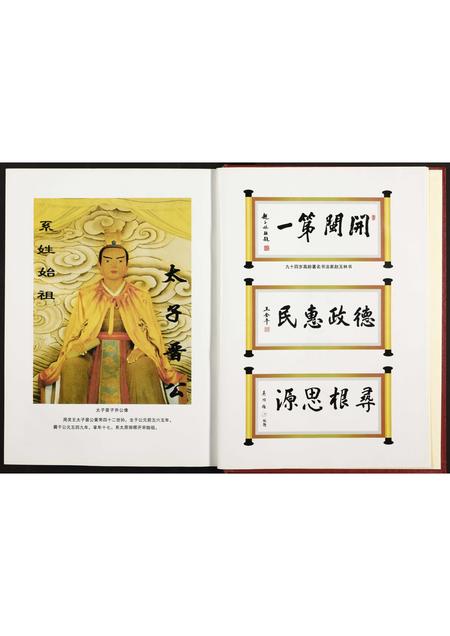 系姓始祖
太子晋公
太子晋子乔公像
周灵王太子晋公黄帝四十二世孙，生于公元前五六五年，
薨于公元五四九年，享年十七，系太原郡郡开宗始祖。
開閩第一
九十四岁高龄著名书法家赵玉林书
德政惠民
王金平
尋根思源